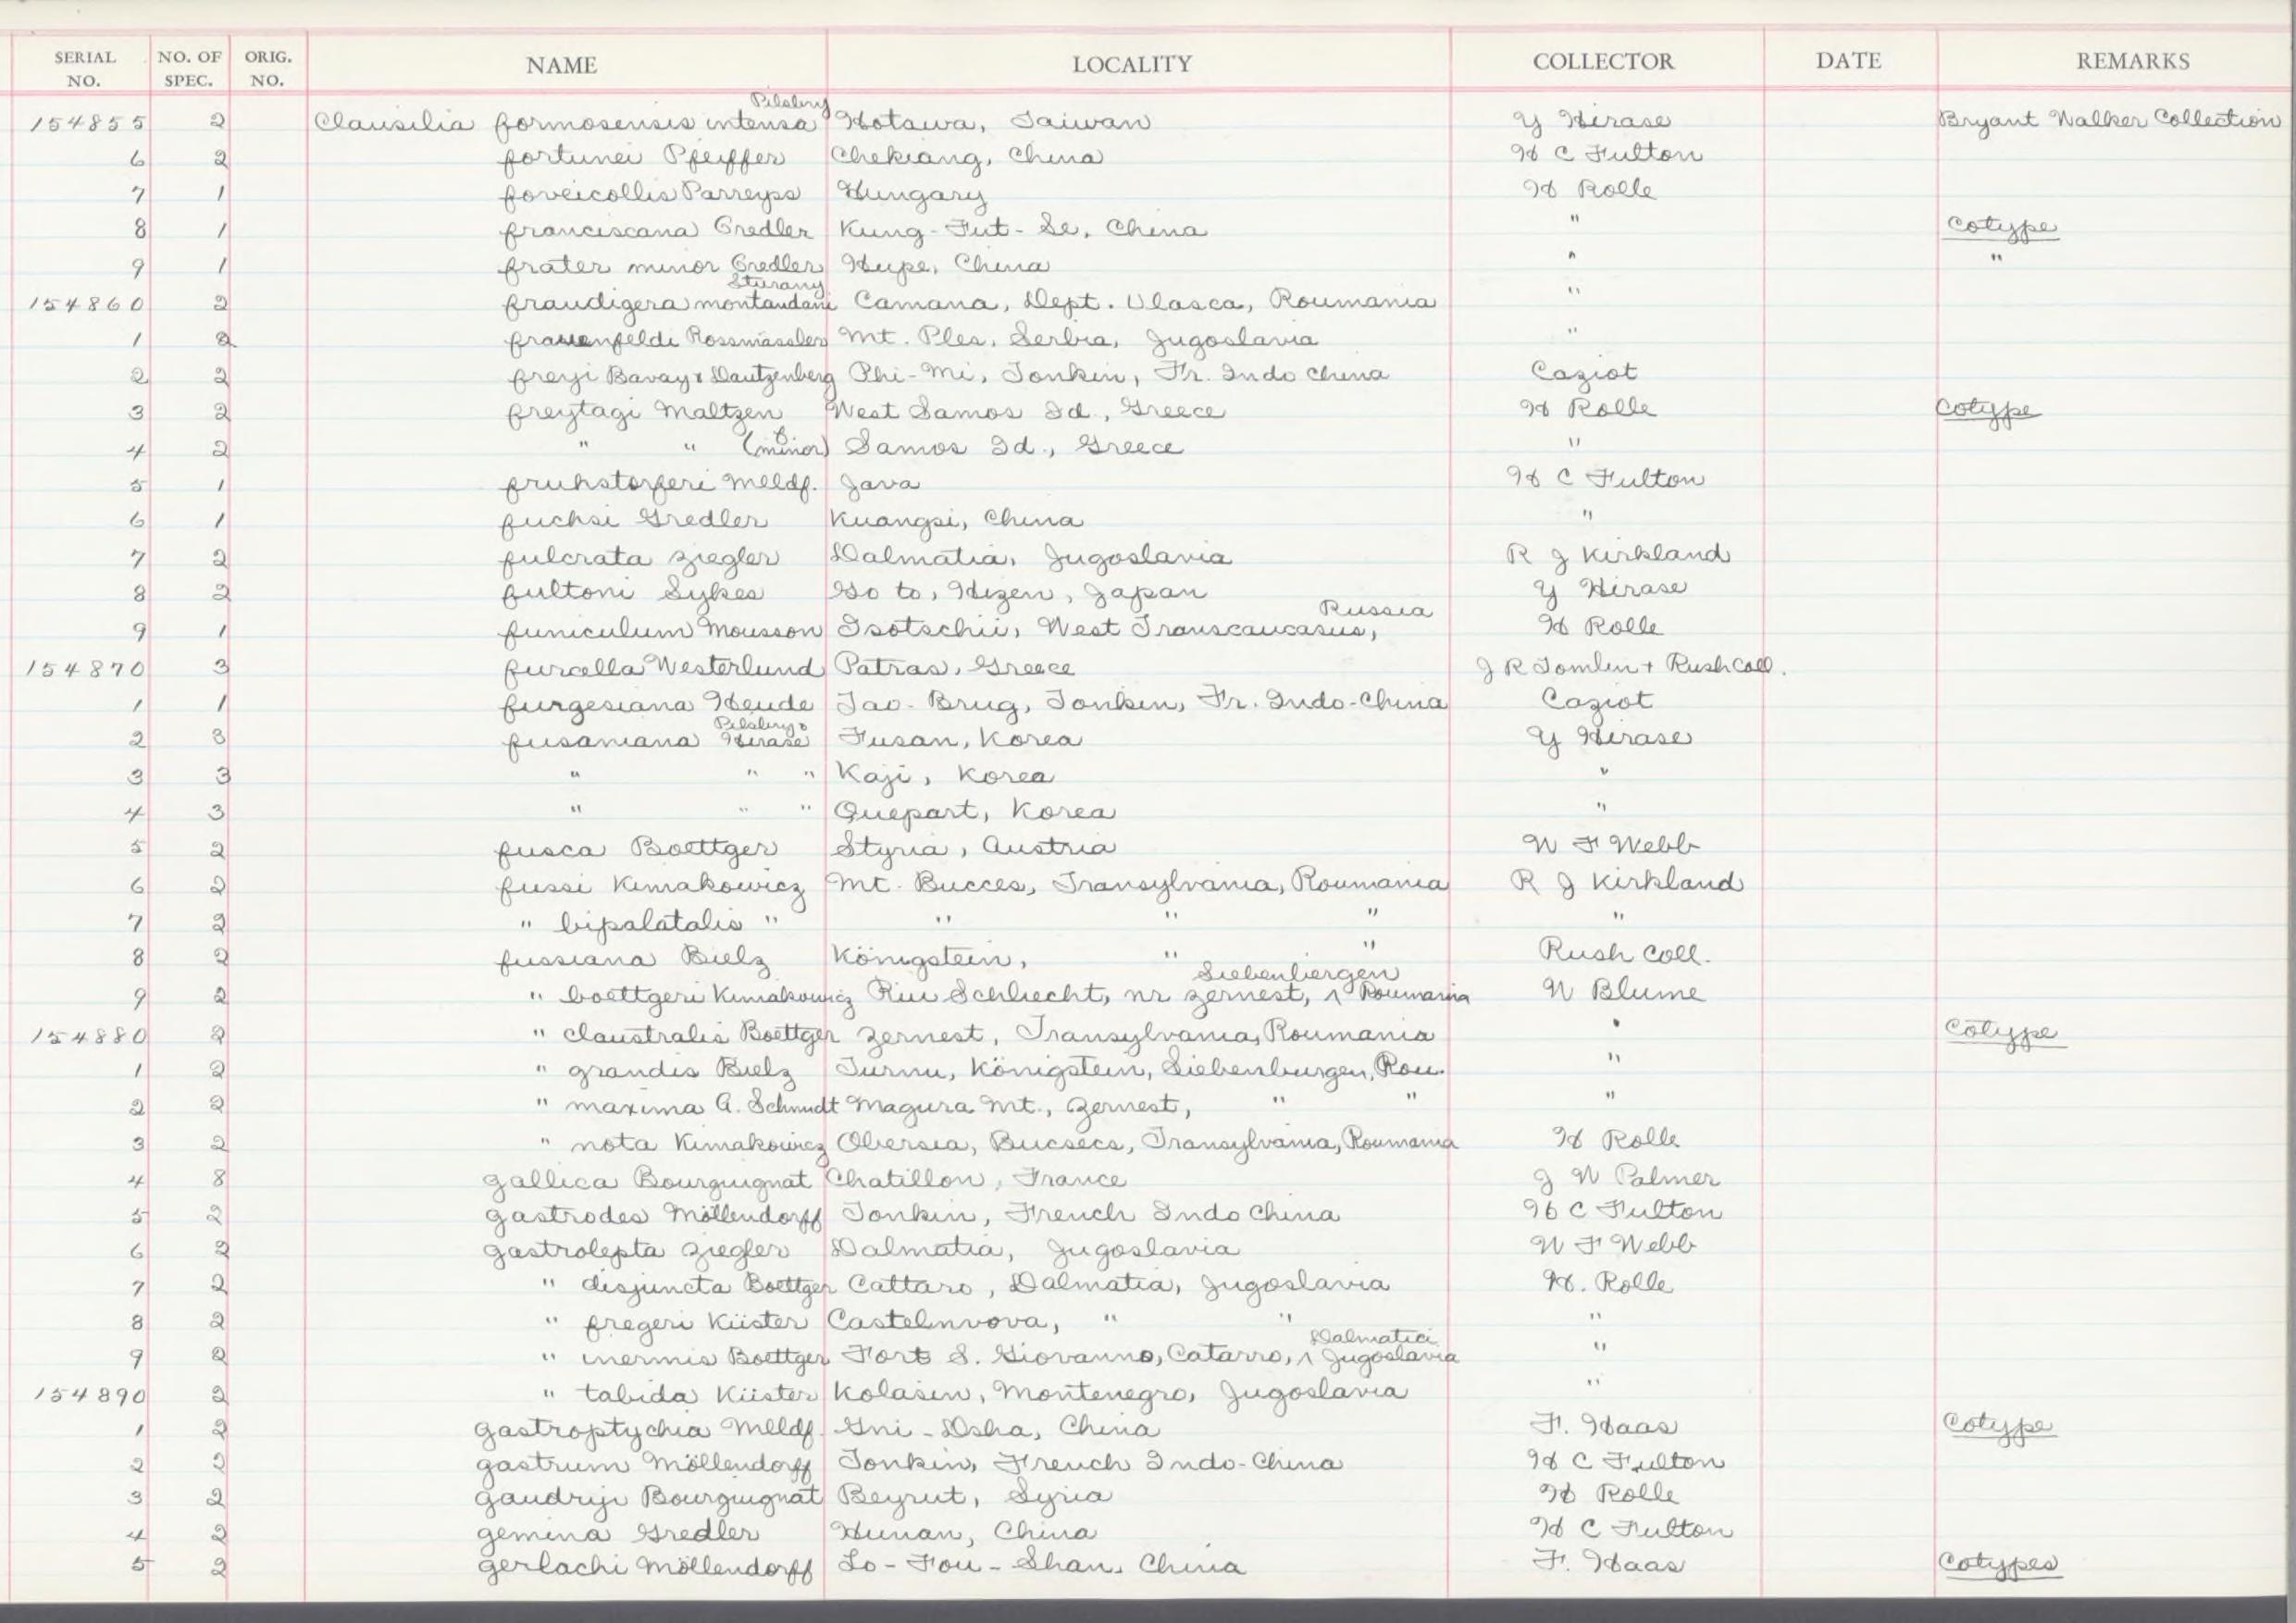 SERIAL NO. NO. OF SPEC. ORIG. NO. NAME LOCALITY COLLECTOR DATE REMARKS
154855 2 Clausilia formosensis intensa Pilsbry Hotawa, Taiwan Y Hirase Bryant Walker Collection
6 2 fortunei Pfeiffer Chekiang, China H C Fulton
7 1 foveicollis Parreyss Hungary H Rolle
8 1 franciscana Gredler Kung-Fut-Se, China " Cotype
9 1 frater minor Gredler Hupe, China " "
154860 2 fraudigera montandani Sturany Camana, Dept. Vlasca, Roumania "
1 2 frauenfeldi Rossmässler Mt. Ples, Serbia, Jugoslavia "
2 2 freyi Bavay & Dautzenberg Phi-Mi, Tonkin, Fr. Indo China Caziot
3 2 freytagi Maltzen West Samos Id., Greece H Rolle Cotype
4 2 " " (minor) Samos Id., Greece "
5 1 fruhstorferi Mlldf. Java H C Fulton
6 1 fuchsi Gredler Kuangsi, China "
7 2 fulcrata Ziegler Dalmatia, Jugoslavia R J Kirkland
8 2 fultoni Sykes Go to, Hizen, Japan Y Hirase
9 1 funiculum Mousson Tsotschii, West Transcaucasus, Russia H Rolle
154870 3 furcella Westerlund Patras, Greece J R Tomlin + Rush Coll.
1 1 furgesiana Heude Tao-Brug, Tonkin, Fr. Indo-China Caziot
2 3 fusaniana Pilsbry & Hirase Fusan, Korea Y Hirase
3 3 " " " Kaji, Korea "
4 3 " " " Quepart, Korea "
5 2 fusca Boettger Styria, Austria W F Webb
6 2 fussi Kimakowicz Mt. Bucces, Transylvania, Roumania R J Kirkland
7 2 " bipalatalis " " " " "
8 2 fussiana Bielz Königstein, " " Rush Coll.
9 2 " boettgeri Kimakowicz Riu Schlecht, nr Zernest, ^ Siebenbergen Roumania W Blume
154880 2 " claustralis Boettger Zernest, Transylvania, Roumania " Cotype
1 2 " grandis Bielz Turnu, Königstein, Siebenburgen, Rou. "
2 2 " maxima A. Schmidt Magura Mt., Zernest, " " "
3 2 " nota Kimakowicz Obersia, Bucsecs, Transylvania, Roumania H Rolle
4 8 gallica Bourguignat Chatillon, France J W Palmer
5 2 gastrodes Möllendorff Tonkin, French Indo China H C Fulton
6 2 gastrolepta Ziegler Dalmatia, Jugoslavia W F Webb
7 2 " disjuncta Boettger Cattaro, Dalmatia, Jugoslavia H. Rolle
8 2 " fregeri Küster Castelnvova, " " "
9 2 " inermis Boettger Fort S. Giovanno, Catarro, ^ Dalmatici Jugoslavia "
154890 2 " tabida Küster Kolasin, Montenegro, Jugoslavia "
1 2 gastroptychia Mlldf. Gni-Dsha, China F. Haas Cotype
2 2 gastrum Möllendorff Tonkin, French Indo-China H C Fulton
3 2 gaudryi Bourguignat Beyrut, Syria H Rolle
4 2 gemina Gredler Hunan, China H C Fulton
5 2 gerlachi Möllendorff Lo-Fou-Shan, China F. Haas Cotypes